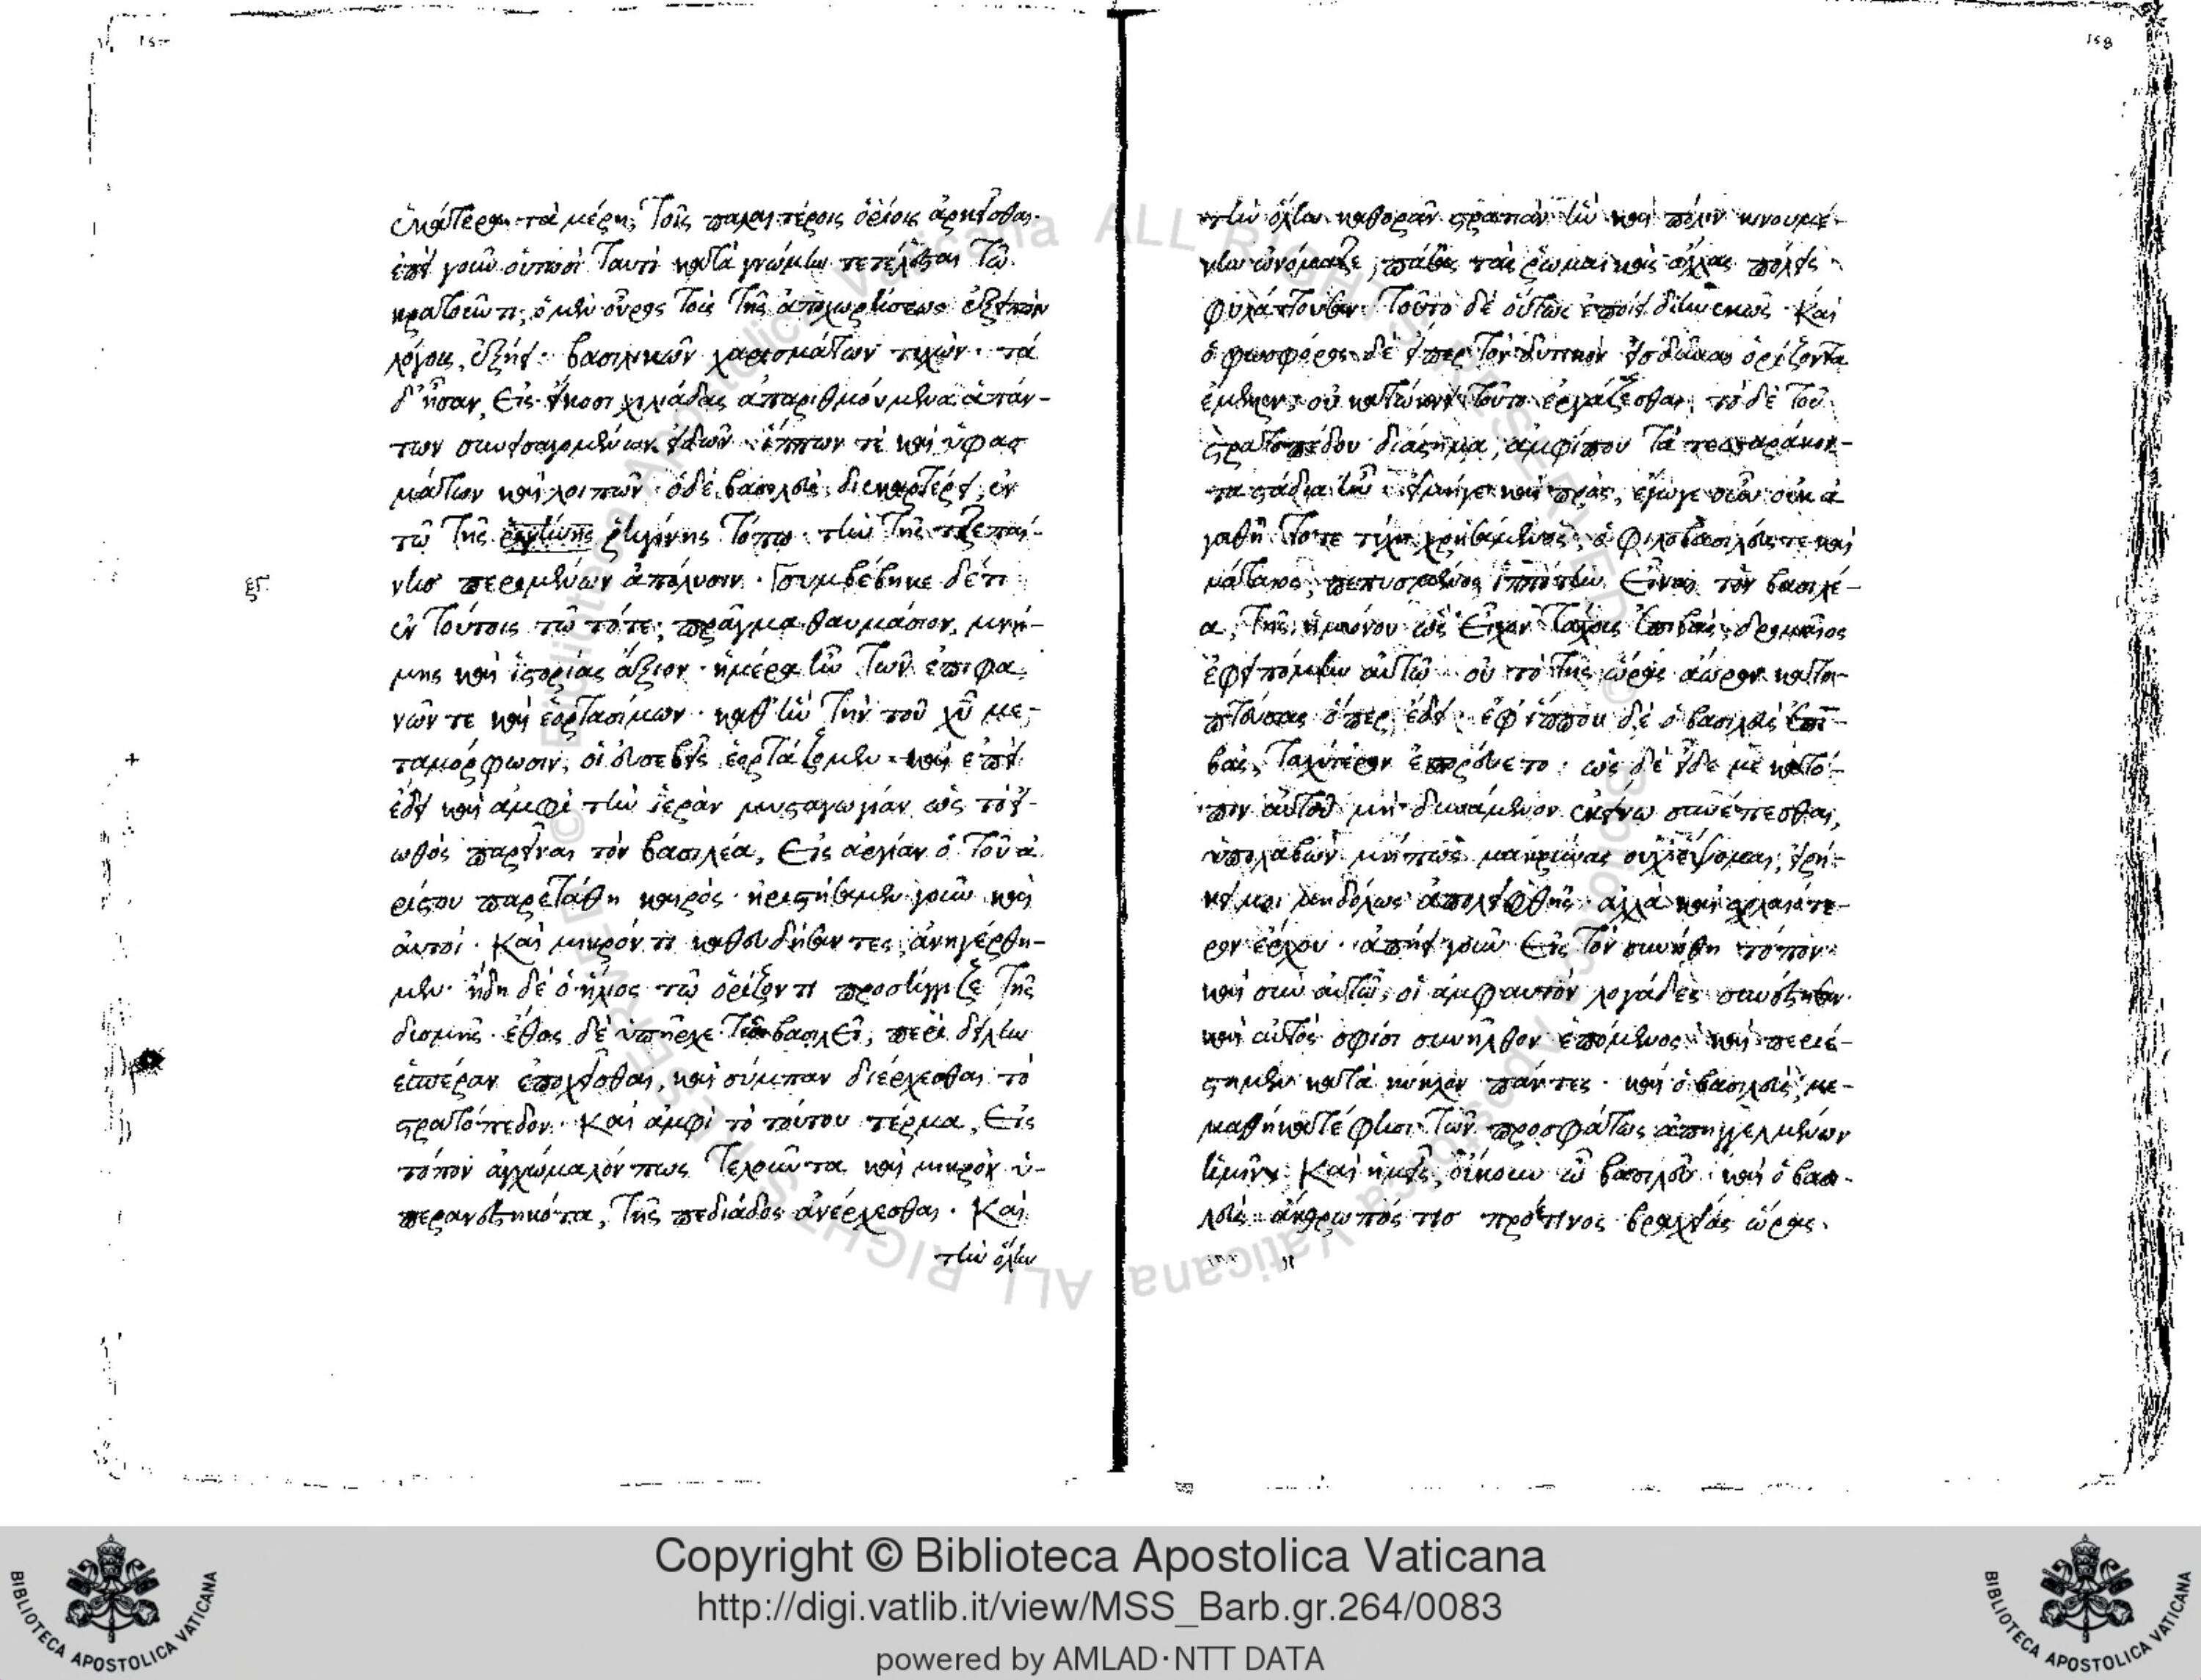 157
ἑκάτερα τὰ μέρη, τοῖς παλαιτέροις ὁρίοις ἀρκεῖσθαι.
ἐπεὶ γοῦν οὑτωσὶ ταυτὶ κατὰ γνώμην τετέλεσται τῷ
κρατοῦντι, ὁ μὲν οὖρος τοῖς τῆς ἀποχωρίσεως ἐξειπὼν
λόγοις, ἐξῄει βασιλικῶν χαρισμάτων τυχών· τὰ
δ' ἦσαν, εἰς εἴκοσι χιλιάδας ἀπαριθμούμενα ἁπάν-
των συνεισαγομένων εἰδῶν ἵππων τὲ καὶ ὑφασ
μάτων καὶ λοιπῶν· ὁ δὲ βασιλεὺς διεκαρτέρει, ἐν
τῷ τῆς ῥεντίνης ῥηγίνης τόπῳ τὴν τῆς
περιμένων ἀπόλυσιν. συμβέβηκε δέ τι
ἐν τούτοις τῷ τότε, πρᾶγμα θαυμάσιον, μνή-
μης καὶ ἱστορίας ἄξιον· ἡμέρα ἦν τῶν ἐπιφα
νῶν τε καὶ ἑορτασίμων· καθ' ἣν τὴν τοῦ χῦ με-
ταμόρφωσιν, οἱ εὐσεβεῖς ἑορτάζομεν· καὶ ἐπεὶ
ἔδει καὶ ἀμφὶ τὴν ἱερὰν μυσταγωγίαν ὡς τὸ εἰ-
ωθὸς παρεῖναι τὸν βασιλέα, εἰς ἀργίαν ὁ τοῦ ἀ
ρίστου παρετάθη καιρός· ἠριστήσαμεν γοῦν καὶ
αὐτοί. Καὶ μικρόν τι καθευδήσαντες, ἀνηγέρθη-
μεν· ἤδη δὲ ὁ ἥλιος τῷ ὁρίζοντι προσήγγιζε τῆς
δυσμῆς· ἔθος δὲ ὑπῆρχε τῷ βασιλεῖ, περὶ δείλην
ἑσπέραν ἐποχεῖσθαι, καὶ σύμπαν διέρχεσθαι τὸ
στρατόπεδον. Καὶ ἀμφὶ τὸ τούτου τέρμα, εἰς
τόπον ἀγχώμαλόν πως τελοῦντα καὶ μικρὸν ὑ-
περανεστηκότα, τῆς πεδιάδος ἀνέρχεσθαι. Καὶ
τὴν ὅλην
158
τὴν ὅλην καθορᾶν στρατιὰν ἣν καὶ πόλιν κινουμέ-
νην ὠνόμαζε, πάσας τὰς ῥωμαϊκὰς ἄλλας πόλεις
φυλάττουσαν. Τοῦτο δὲ οὕτως ἐποίει διηνεκῶς. Καὶ
ὁ φωσφόρος δὲ εἴπερ τὸν δυτικὸν εἰσδῦναι ὁρίζοντα
ἔμελλεν, οὐ κατώκνει τοῦτο ἐργάζεσθαι· τὸ δὲ τοῦ
στρατοπέδου διάστημα, ἀμφί που τὰ τεσσαράκον-
τα στάδια ἦν εἰ μή γε καὶ πρός, ἔγωγε οὖν οὐκ ἀ
γαθῇ τότε τύχῃ χρησάμενος, ὁ φιλοβασιλεύς τε καὶ
μάταιος, πεπυσμένος ἱππότην εἶναι τὸν βασιλέ-
α, τῆς ἡμιόνου ὡς εἶχον τάχους ἐπιβὰς δρομαῖος
ἐφειπόμην αὐτῷ οὐ τὸ τῆς ὥρας ἄωρον κατο-
πτεύσας ὅπερ ἔδει· ἐφ' ἵππου δὲ ὁ βασιλεὺς ἐπι-
βὰς, ταχύτερον ἐπορεύετο· ὡς δὲ εἶδε μὲ κατό-
πιν αὐτοῦ μὴ δυνάμενον ἐκείνῳ συνέπεσθαι,
ὑπολαβὼν μήπως μακρύνας οὐχ ἕψομαι, εἰρή-
κει μοι μηδόλως ἀπολειφθῇς· ἀλλὰ καὶ σχλαιότε-
ρον ἔρχου· ἀπῄει γοῦν εἰς τὸν συνήθη τόπον
καὶ σὺν αὐτῷ, οἱ ἀμφ' αὐτὸν λογάδες συνέστησαν
καὶ αὐτὸς σφίσι συνῆλθον ἑπόμενος καὶ περιέ-
στημεν κατὰ κύκλον πάντες. καὶ ὁ βασιλεύς, με-
μαθήκατέ φησι τῶν προσφάτως ἀπηγγελμένων
ἡμῖν; Καὶ ἡμεῖς, οὔκουν ὦ βασιλεῦ· καὶ ὁ βασι-
λεύς ἄνθρωπός τις πρό τινος βραχείας ὥρας.